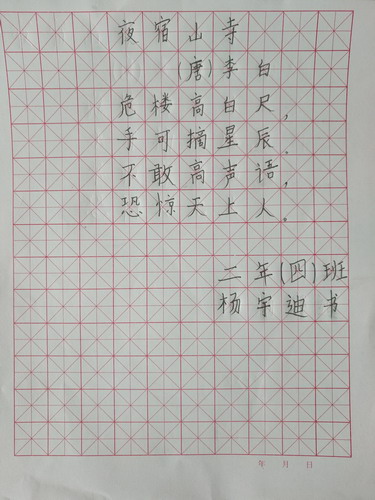 夜宿山寺
(唐)李白
危楼高白尺,
手可摘星辰.
不敢高声语,
恐惊天上人。
二年(四)班
杨宇迪书
年 月 日